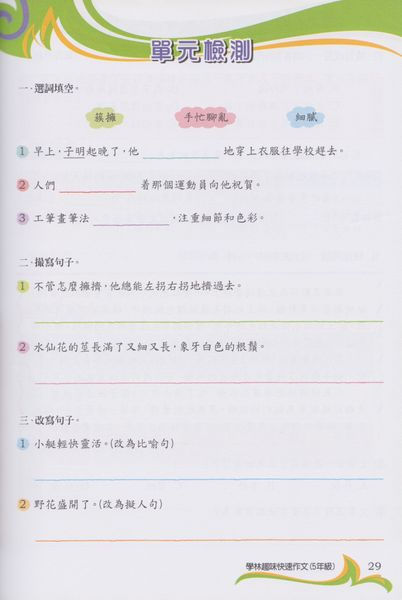 單元檢測
一、選詞填空。
簇擁 手忙腳亂 細膩
1 早上，子明起晚了，他 ____ 地穿上衣服往學校趕去。
2 人們 ____ 着那個運動員向他祝賀。
3 工筆畫筆法 ____ ，注重細節和色彩。
二、擬寫句子。
1 不管怎麼擁擠，他總能左拐右拐地擠過去。
2 水仙花的莖長滿了又細又長，象牙白色的根鬚。
三、改寫句子。
1 小艇輕快靈活。(改為比喻句)
2 野花盛開了。(改為擬人句)
學林趣味快速作文(5年級) 29